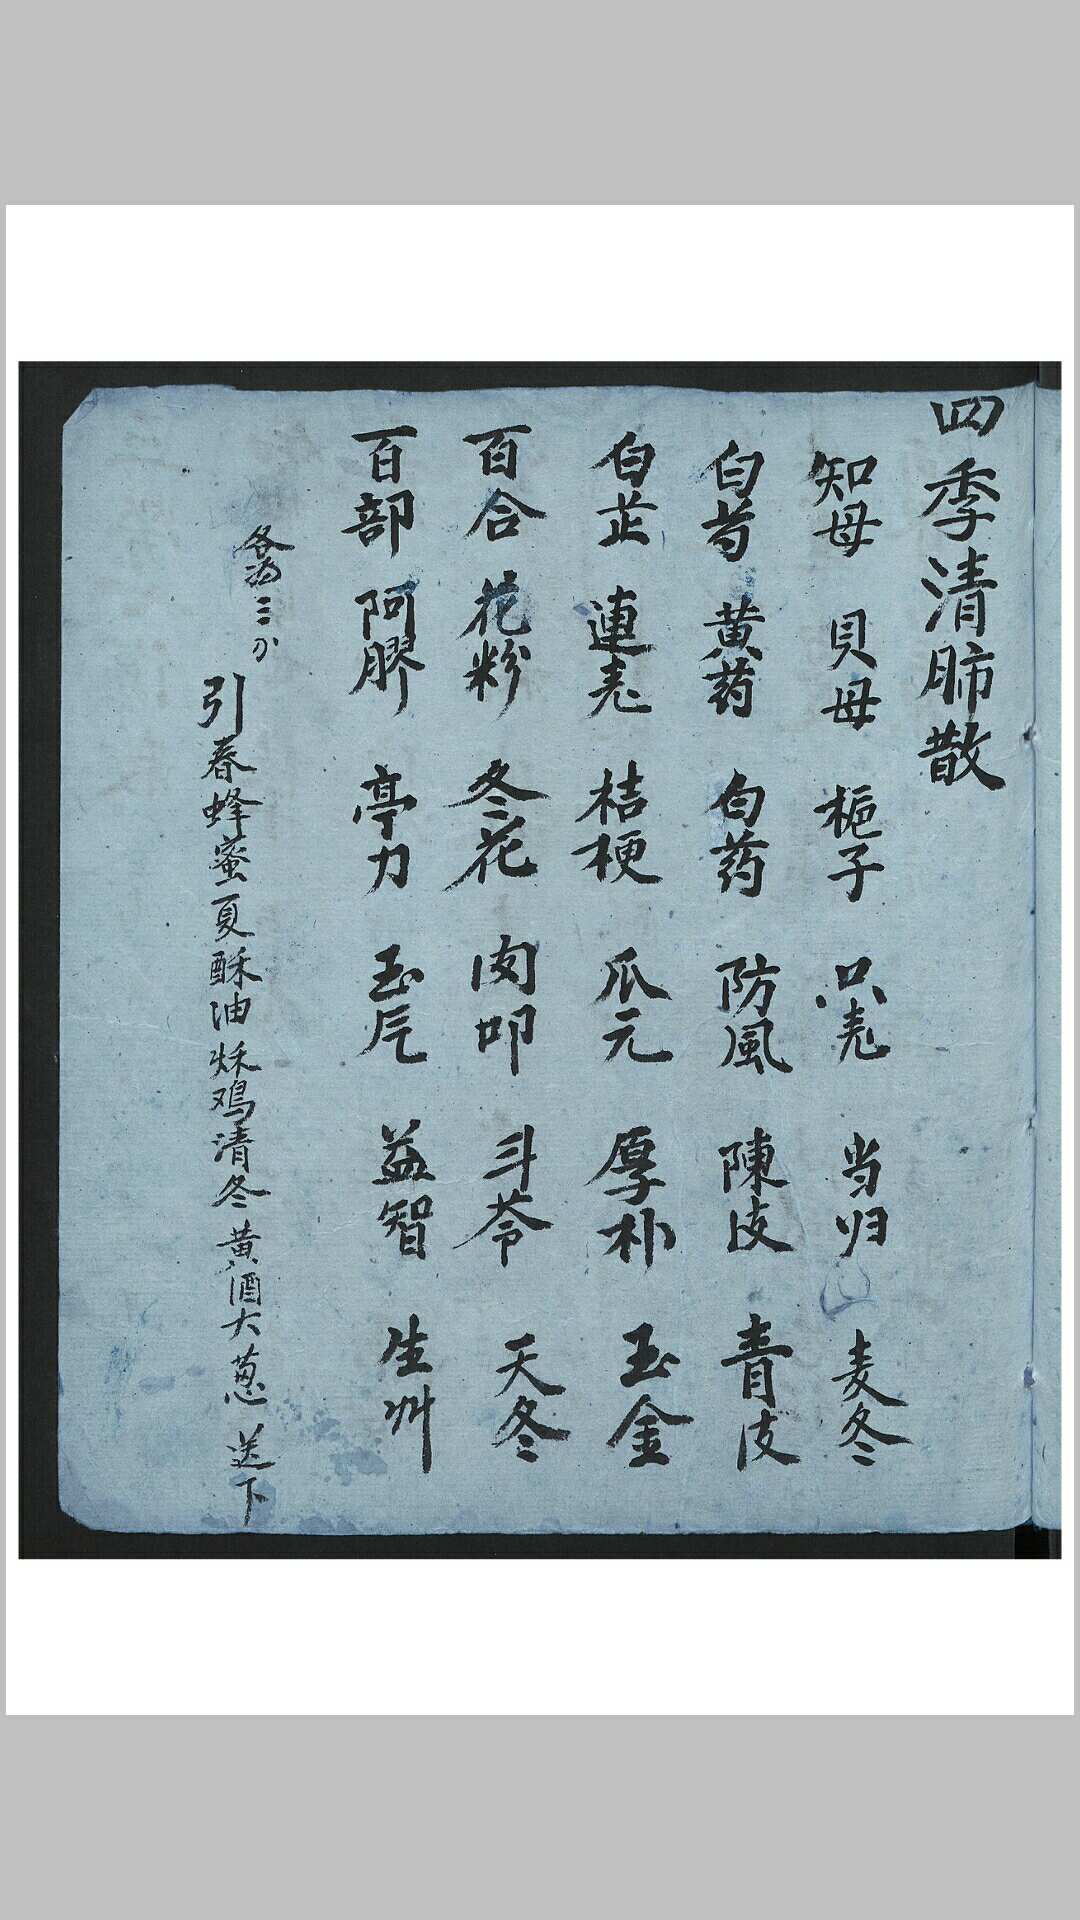 四季清肺散
知母 貝母 梔子 只壳 当归 麦冬
白芍 黄药 白药 防風 陳皮 青皮
白芷 連壳 桔梗 瓜元 厚朴 玉金
百合 花粉 冬花 肉叩 斗苓 天冬
百部 阿膠 亭力 玉片 益智 生艸
三分
引春蜂蜜夏酥油秌鸡清冬黄酒大葱送下